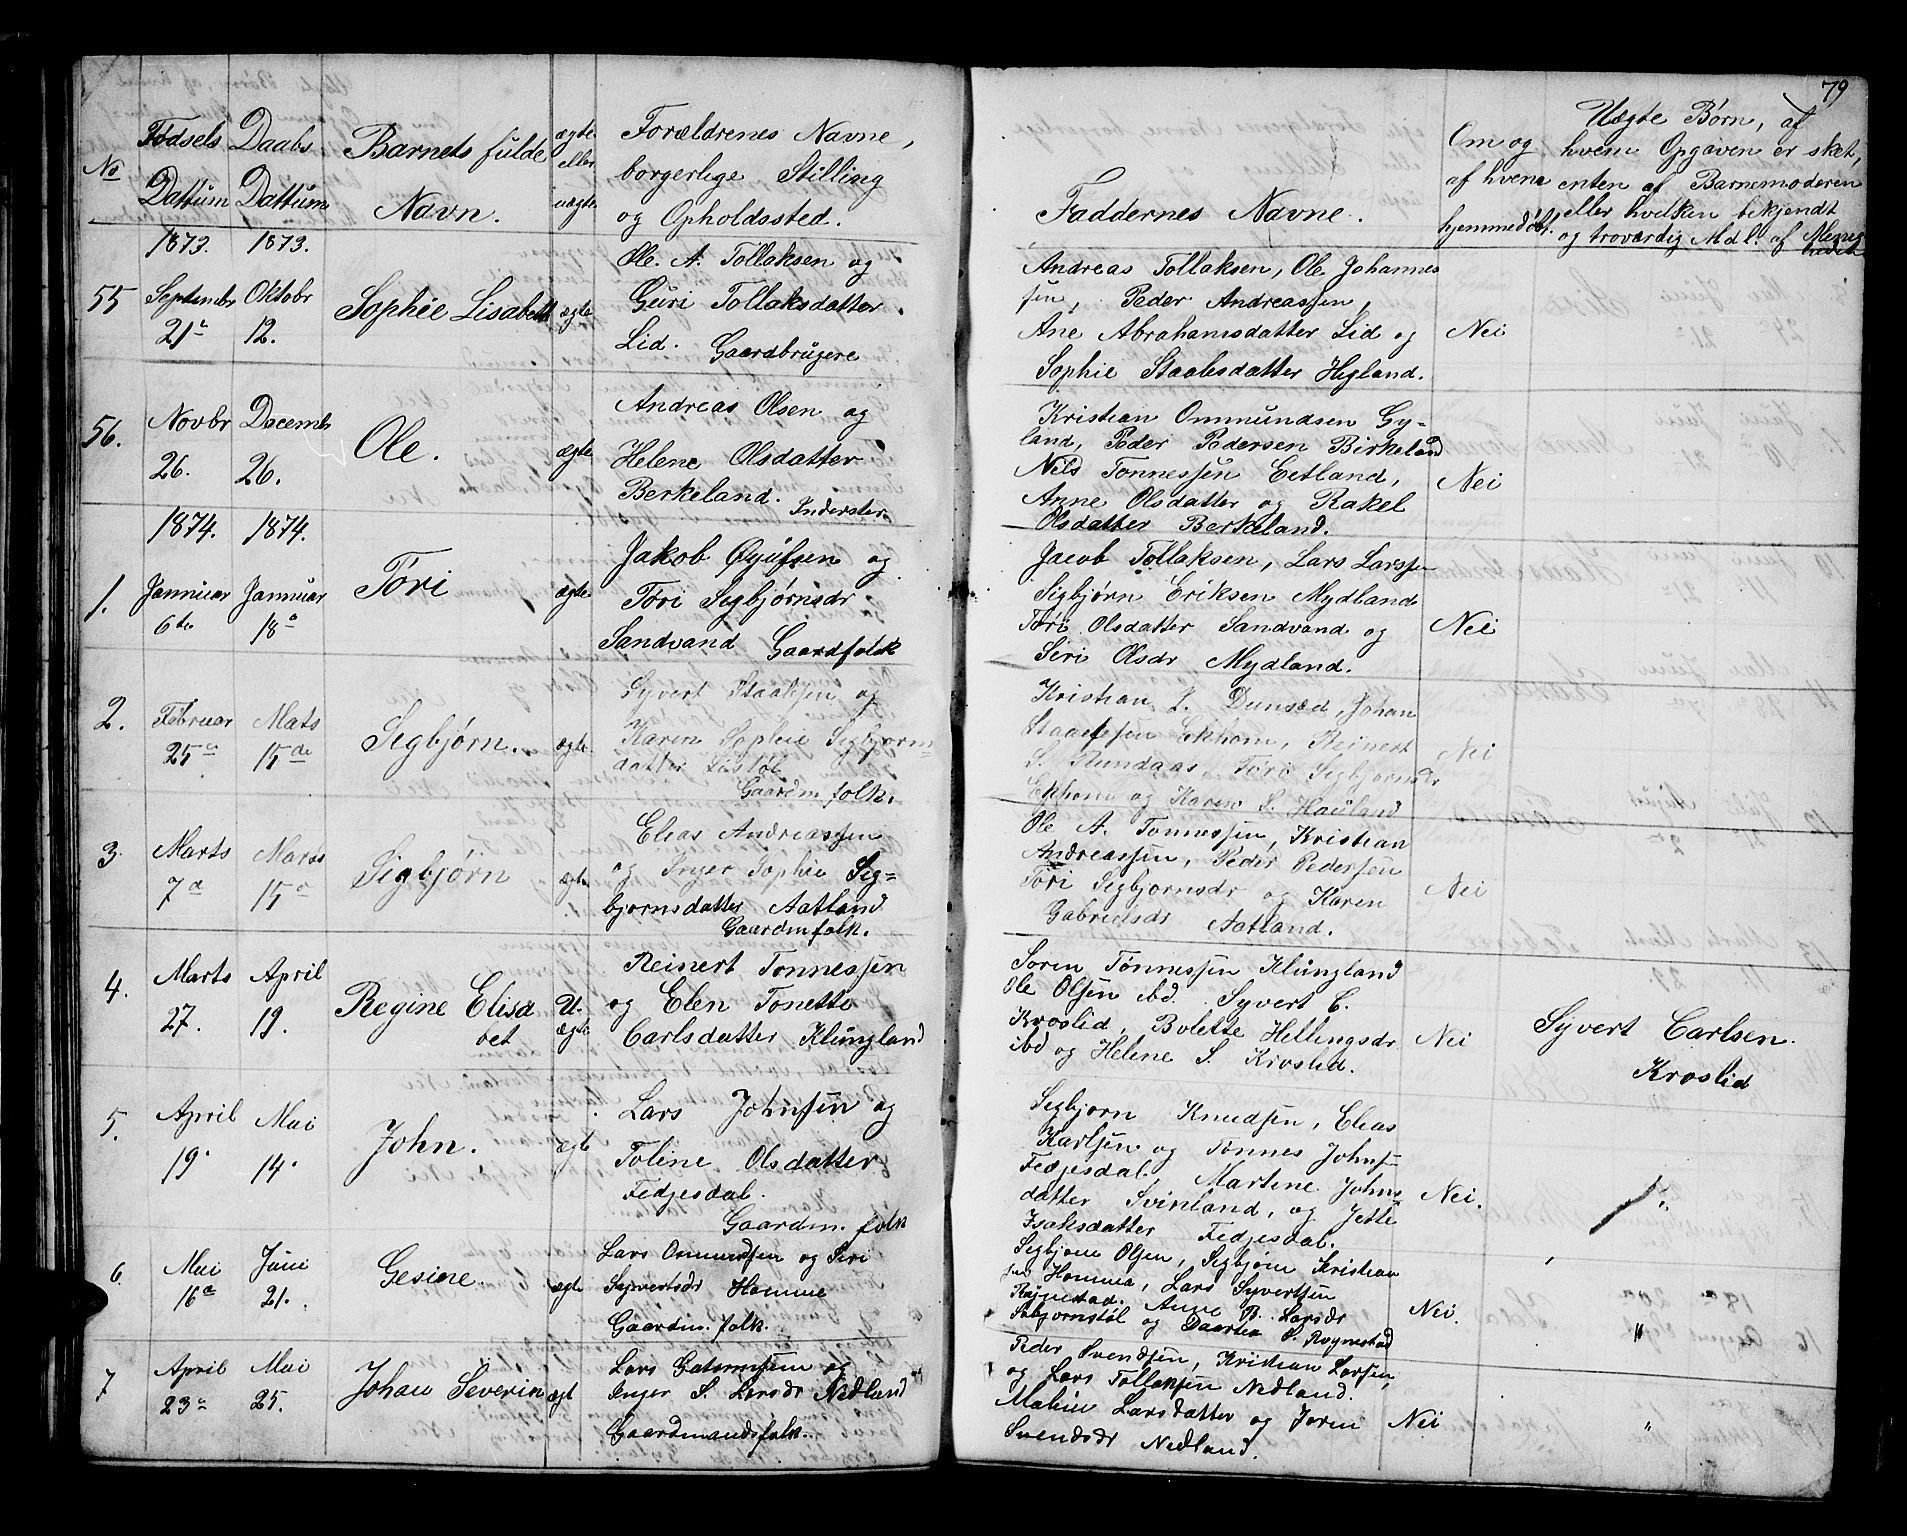 79
No
Fødsels
Dattum
Daabs
Dattum
Barnets fulde
Navn.
ægte
eller
uægte
Forældrenes Navne,
borgerlige Stilling
og Opholdssted.
Faddernes Navne.
Om og
af hvem
hjemmedøbt.
Uægte Børn, af
hvem Opgaven er sket,
enten af Barnemoderen
eller hvilken bekjendt
og troværdig Mdl. af Menig
heden
1873. 1873.
55 Septembr Oktobr
21de 12.
Sophie Lisabett ægte
Ole. A. Tollaksen og
Guri Tollaksdatter
Lid. Gaardbrugere
Andreas Tollaksen, Ole Johannes
sen, Peder Andreassen,
Ane Abrahamsdatter Lid og
Sophie Staalesdatter Hegland.
Nei
56. Novbr Decembr
26. 26.
Ole. ægte
Andreas Olsen og
Helene Olsdatter
Berkeland. Inderster
Kristian Ommundsen Gy-
land, Peder Pedersen Birkeland
Nils Tønnessen Eetland,
Anne Olsdatter og Rakel
Olsdatter Berkeland.
Nei
1874. 1874.
1. Januar Januar
6te 18de
Tøri ægte
Jakob Øyufsen og
Tøri Segbjørnsdr
Sandvand Gaardfolk
Jacob Tollaksen, Lars Larssen
Segbjørn Eriksen Mydland
Tøri Olsdatter Sandvand og
Seri Olsdr Mydland.
Nei
2. Februar Mats
25de 15de
Segbjørn. ægte
Syvert Staalesen og
Karen Sophie Segbjørns=
datter Listøl
Gaardm. folk.
Kristian J. Dunsæd, Johan
Staalesen Ekhom, Reinert
S. Rundaas, Tøri Segbjørnsdr
Ekhom og Karen S. Hauland
Nei
3. Marts Marts
7de 15de
Sigbjørn ægte
Elias Andreassen
og Inger Sophie Seg=
bjornsdatter Aatland
Gaardmfolk.
Ole A. Tonnessen, Kristian
Andreassen, Peder Pedersen
Tøri Segbjornsdr og Karen
Gabrielsdr Aatland.
Nei
4. Marts April
27. 19.
Regine Elisa
bet
U.
ægte
Reinert Tonnessen
og Elen Tonette
Carlsdatter Klungland
Soren Tønnessen Klungland
Ole Olsen ibd. Syvert C.
Kroslid, Bolette Hellingsdr
ibd og Helene S. Kroslid.
Nei
Syvert Carlsen.
Kroslid
5. April Mai
19. 14.
John. ægte
Lars Johnsen og
Toline Olsdatter
Fedjesdal.
Gaardm. folk
Segbjorn Knudsen, Elias
Karlsen og Tønnes Johnsen
Fedjesdal. Martine Johns
datter Svinland, og Jette
Isaksdatter Fedjesdal.
Nei.
"
6. Mai Juni
16de 21.
Gesine. ægte
Lars Ommundsen og Seri
Syvertsdr Homme
Gaardm. folk.
Segbjorn Olsen, Segbjørn Kristian
sen Homme, Lars Syvertsen
Røynestad. Anne B. Larsdr
Sebjornstøl og Daartea S. Røynestad
Nei.
"
7 April Mai
23de 25.
Johan Severin ægt
Lars Gutormsen og
Inger S. Larsdr Nedland
Gaardmandsfolk.
Peder Svendsen, Kristian Larsen,
og Lars Tollaksen Nedland.
Malene Larsdatter og Joren
Svendsdr Nedland.
Nei
"